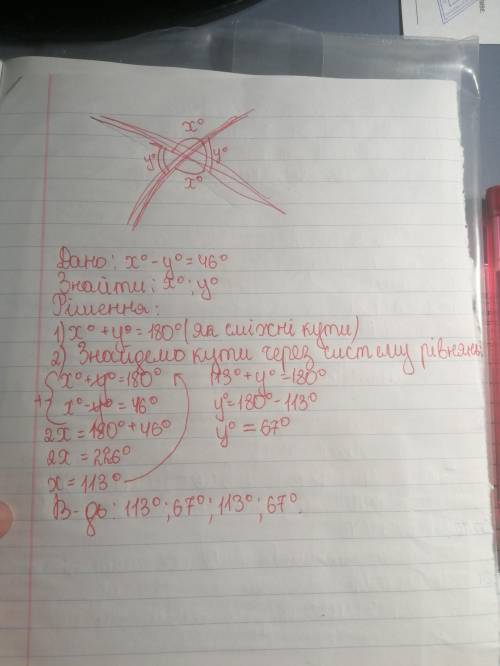 x°
y° y°
x°
Дано: x°-y°=46°
Знайти: x°; y°
Рішення:
1) x°+y°=180° (як сміжні кути)
2) Знайдемо кути через систему рівнянь:
x°+y°=180°
+ x°-y°=46°
2x=180°+46°
2x=226°
x=113°
113°+y°=180°
y°=180°-113°
y°=67°
В-дь: 113°; 67°; 113°; 67°.